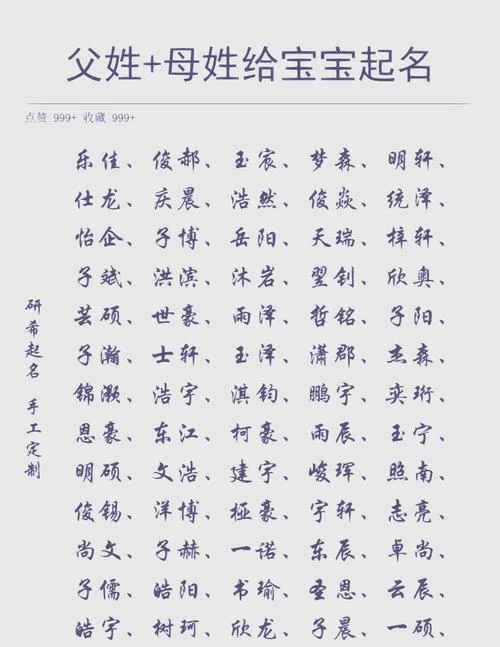 父姓+母姓给宝宝起名
点赞 999+ 收藏 999+
乐佳、俊郝、玉宸、梦森、明轩、
仕龙、庆晨、浩然、俊焱、统泽、
怡企、子博、岳阳、天瑞、梓轩、
子斌、洪滨、沐岩、翌钊、欣奥、
芸硕、世豪、雨泽、哲铭、子阳、
子瀚、士轩、玉泽、潇郡、杰森、
锦灏、浩宇、淇钧、鹏宇、奕珩、
恩豪、东江、柯豪、雨辰、玉宁、
明硕、文浩、建宇、峻珲、照南、
俊锡、洋博、桠豪、宇轩、志亮、
尚文、子赫、一诺、东辰、卓尚、
子儒、皓阳、书瑜、圣恩、云辰、
皓宇、树珂、欣龙、子晨、一硕、
研希起名 手工定制